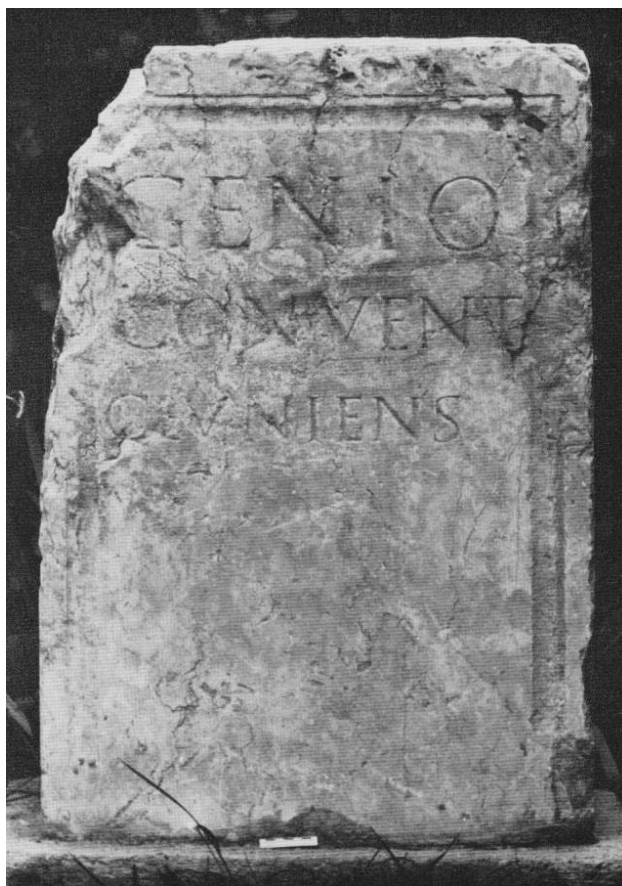 GENIO
CONVENT
CLVNIENS